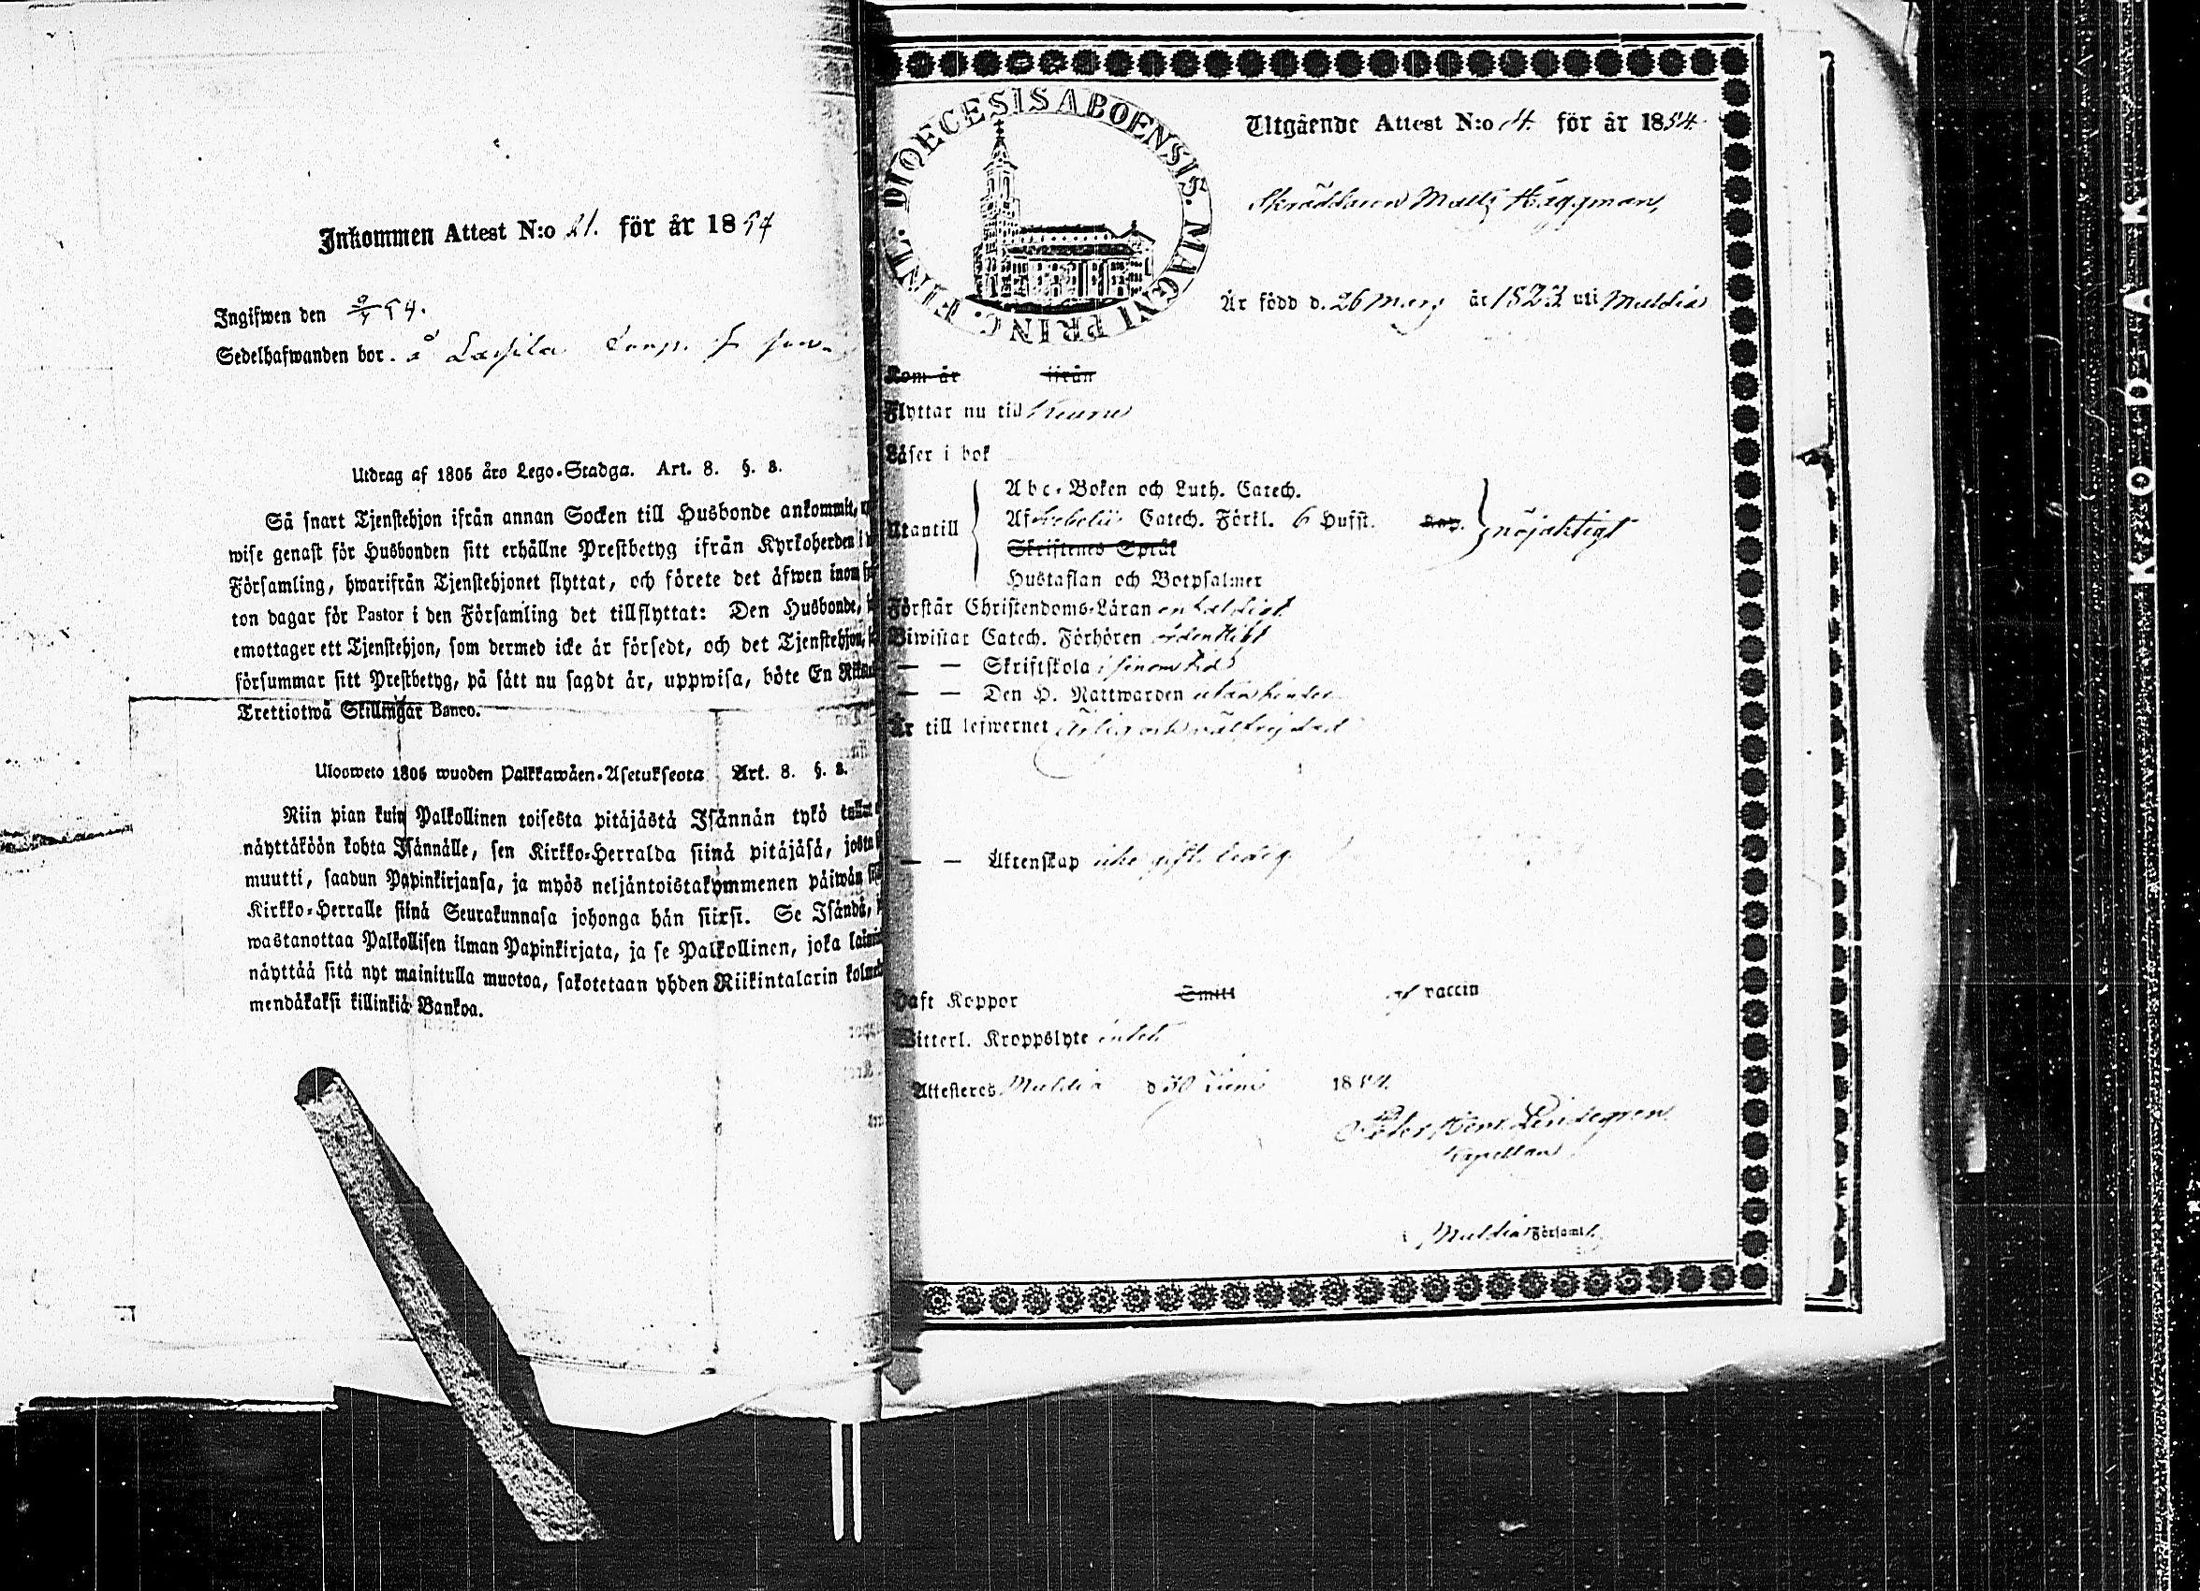 Inkommen Attest N:o 21. för år 1854
Ingifwen den 9/7 54.
Sedelhafwanden bor. å Lassila
Utdrag af 1805 års Lego-Stadga. Art. 8. §. 8.
Så snart Tjenstehjon ifrån annan Socken till Husbonde ankommit,
wise genast för Husbonden sitt erhållne Prestbetyg ifrån Kyrkoherden i
Församling, hwarifrån Tjenstehjonet flyttat, och förete det äfwen inom
ton dagar för Pastor i den Församling det tillflyttat: Den Husbonde,
emottager ett Tjenstehjon, som dermed icke är försedt, och det Tjenstehjon,
försummar sitt Prestbetyg, på sätt nu sagdt är, uppwisa, böte En
Trettiotwå Skillingar Banco.
Ulosweto 1805 wuoden Palkkawäen-Asetuksesta Art. 8. §. 8.
Niin pian kuin Palkollinen toisesta pitäjästä Isännän tykö
näyttäköön kohta Isännälle, sen Kirkko-Herralda siinä pitäjäsä, josta
muutti, saadun Papinkirjansa, ja myös neljäntoistakymmenen päiwän
Kirkko-Herralle siinä Seurakunnasa johonga hän siirsi. Se Isändä,
wastanottaa Palkollisen ilman Papinkirjata, ja se Palkollinen, joka
näyttää sitä nyt mainitulla muotoa, sakotetaan yhden Riikintalarin
mendäkaksi killinkiä Bankoa.
DIOECESIS ABOENSIS. MAGNI PRINC. FINL.
Utgående Attest N:o 4. för år 1854.
Skräddaren Matts Häggman,
Är född d. 26 Mars år 1823 uti Muldia
Kom år ifrån
Flyttar nu till Keuru
Läser i bok
Utantill
Abc-Boken och Luth. Catech.
Af Sebelii Catech. Förkl. 6 Hufst. Kap. nöjaktigt
Skriftenes Språk
Hustaflan och Botpsalmer
Förstår Christendoms-Läran enfaldigt
Biwistar Catech. Förhören ordentligt
— — Skriftskola i sinom tid
— — Den H. Nattwarden utan hinder
Är till lefwernet Ärlig och välfrejdad
— — Äktenskap icke gift. ledig
Haft Koppor Smitt vaccin
Witterl. Kroppslyte intet
Attesteres Muldia d 30 Juni 1854.
Lindegren
Kapellan
Muldia Församl.
KODAK